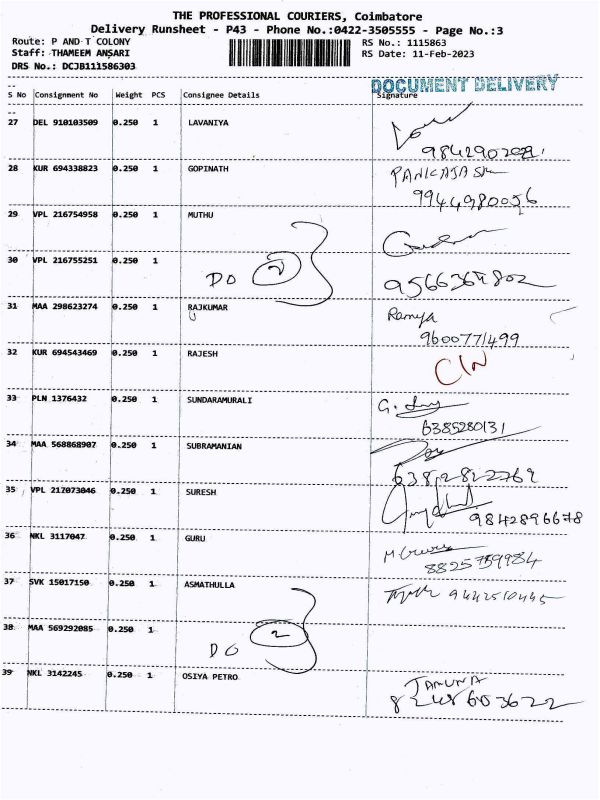 THE PROFESSIONAL COURIERS, Coimbatore
Delivery Runsheet - P43 - Phone No.:0422-3505555 - Page No.:3
Route: P AND T COLONY RS No.: 1115863
Staff: THAMEEM ANSARI RS Date: 11-Feb-2023
DRS No.: DCJB111586303
DOCUMENT DELIVERY
S No Consignment No Weight PCS Consignee Details Signature
27 DEL 910103509 0.250 1 LAVANIYA
28 KUR 694338823 0.250 1 GOPINATH
9944980056
29 VPL 216754958 0.250 1 MUTHU
30 VPL 216755251 0.250 1
DO 2
31 MAA 298623274 0.250 1 RAJKUMAR Ramya
9600771499
32 KUR 694543469 0.250 1 RAJESH
33 PLN 1376432 0.250 1 SUNDARAMURALI
6385280131
34 MAA 568868907 0.250 1 SUBRAMANIAN
35 VPL 217073046 0.250 1 SURESH
9842896678
36 NKL 3117047 0.250 1 GURU
37 SVK 15017150 0.250 1 ASMATHULLA
38 MAA 569292085 0.250 1
DO 2
39 NKL 3142245 0.250 1 OSIYA PETRO JAMUNA
8248603622